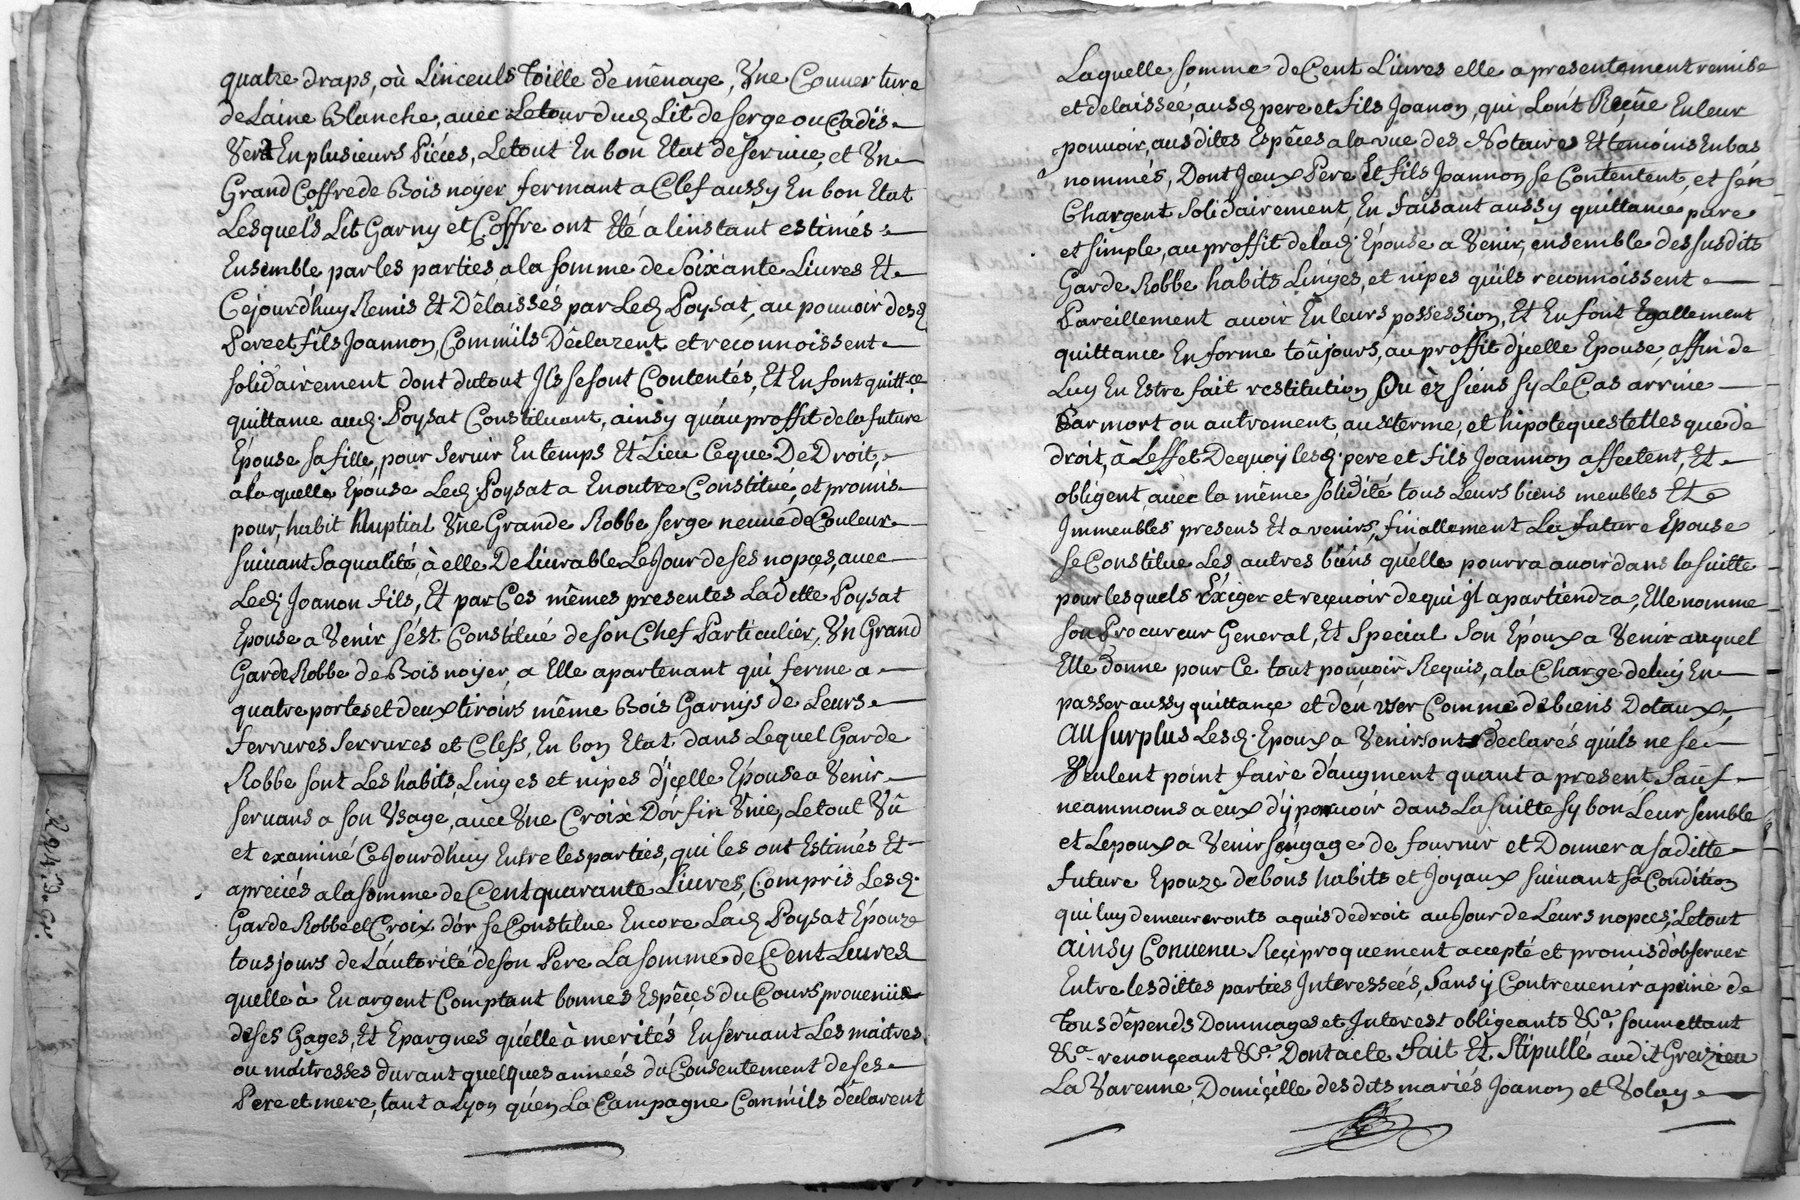 quatre draps, où Linceuls Toille de mênage, Vne Couuerture
de Laine Blanche, auec Le tour dud. Lit de serge ou Cadis
Vert En plusieurs Piéces, Letout En bon Etat de seruice, et Vn
Grand Coffre de Bois noyer fermant a Clef aussy En bon Etat
Lesquels Lit Garny et Coffre ont Eté a linstant estimés
Ensemble par les parties a la somme de Soixante Liures Et
Cejourd'huy Remis Et Délaissés par Led. Poysat, au pouuoir desd.
Pere et fils Joannon, Comm'ils Déclarent et reconnoissent
solidairement dont dutout Jls se sont Contentés, Et En font quitt.ce
quittance aud. Poysat Constituant, ainsy qu'au proffit de la future
Epouse sa fille, pour seruir En temps Et Lieu Ceque De Droit,
a laquelle Epouse Led. Poysat a En outre Constitué, et promis
pour, habit Nuptial Vne Grande Robbe serge neuue de Couleur
suiuant Saqualité, à elle De Liurable Le Jour de ses nopces, auec
Led. Joanon fils, Et par Ces mêmes presentes Laditte Poysat
Epouse a Venir s'ést Constitué de son Chef Particulier, Vn Grand
Garde Robbe de Bois noyer, a Elle apartenant qui ferme a
quatre portes et deux tiroirs même Bois Garnys de Leurs
ferrures serrures et Clefs, En bon Etat, dans Lequel Garde
Robbe sont Les habits, Linges et nipes d'jçelle Epouse a Venir
seruans a son Vsage, auec Vne Croix D'or fin Vnie, Letout Vû
et examiné Cejourd'huy Entre les parties, qui les ont Estimés Et
apreciés a la somme de Cent quarante Liures, Compris Lesd.
Garde Robbe et Croix d'or se Constitue Encore Lad. Poysat Epouze
tousjours de L'autorité de son Pere La somme de Cent Liures
quelle à En argent Comptant bonnes Espêces du Cours prouenüe
de ses Gages, Et Epargnes qu'elle à merités En seruant Les maitres
ou maitresses durant quelques années du Consentement de ses
Pere et mere, tant a Lyon qu'en La Campagne Comm'ils déclarent
Laquelle somme de Cent Liures elle a presentement remise
et delaissée, ausd. pere et fils Joanon, qui Lont Reçüe En leur
pouuoir, ausdites Espêces a la vue des Notaires Et temoins En bas
nommés, Dont Jceux Pere Et fils Joannon se Contentent, et s'en
Chargent solidairement, En faisant aussy quittance pure
et simple, au proffit de lad. Epouse a Venir, ensemble des susdits
Garde Robbe habits Linges, et nipes qu'ils reconnoissent
Pareillement auoir En leurs possession, Et En font Egallement
quittance En forme toûjours, au proffit d'jcelle Epouse, affin de
Luy En Estre fait restitution Ou èz siens sy Le Cas arriue
Par mort ou autrement, aux terme, et hipoteques telles que de
droit, à Leffet Dequoy lesd. pere et fils Joannon affectent, Et
obligent, auec la même solidité tous Leurs biens meubles Et
Immeubles presens Et a venirs, finallement La future Epouse
se Constitue Les autres biens quelle pourra auoir dans la suitte
pour lesquels Exiger et reçeuoir de qui Jl apartiendra, Elle nomme
son Procureur General, Et special son Epoux a Venir auquel
Elle donne pour Ce tout pouuoir Requis, a la Charge de luy En
passer aussy quittance et d'en user Comme de biens Dotaux,
Au surplus Lesd. Epoux a Venir sont declarés qu'ils ne sé
Veulent point faire d'augment quant a present, Sauf
neammoins a eux d'y pouruoir dans La suitte sy bon Leur semble
et Lepoux a Venir s'engage de fournir et Donner a saditte
future Epouze de bons habits et Joyaux suiuant sa Condition
qui luy demeureronts aquis dedroit au Jour de Leurs nopces; Letout
Ainsy Conuenu Reciproquement accepté et promis d'obseruer
Entre les dittes parties Interessées, Sans y Contreuenir apeine de
tous dêpends Dommages et Interest obligeants &a. soumettant
&a. renonçeant &a. Dontacte Fait Et Stipullé audit Greizieu
La Varenne, Domiçille des dits mariés Joanon et Volay